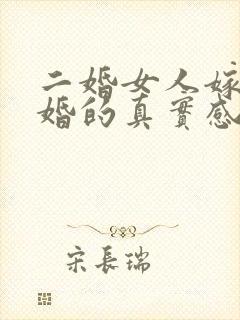 二婚女人嫁
婚的真實感
宋長瑞